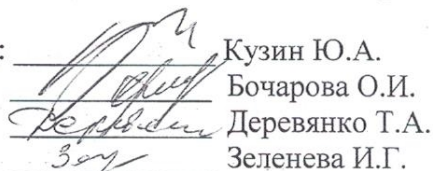 : Кузин Ю.А.
Бочарова О.И.
Деревянко Т.А.
Зеленева И.Г.